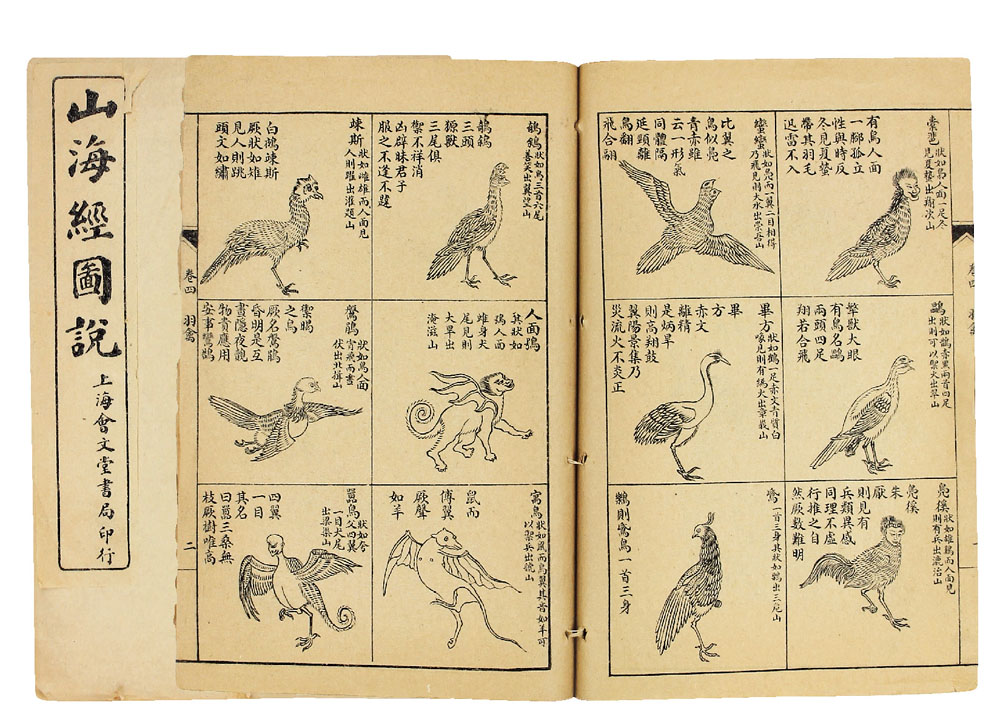 山海經圖說
上海會文堂書局印行
狀如梟人面一足冬
見夏蟄出羭次山
有鳥人面
一腳孤立
性與時反
冬見夏蟄
帶其羽毛
迅雷不入
蠻蠻
狀如鳧而一翼一目相得
乃飛見則天水出崇吾山
比翼之
鳥似鳧
青赤雖
云一形氣
同體隔
延頸離
鳥翻
飛合翮
鸓
狀如鵲赤黑兩首四足
出則可以禦火出翠山
摯獸大眼
有鳥名鸓
兩頭四足
翔若合飛
畢方
狀如鶴一足赤文青質白
喙見則有譌火出章莪山
畢
方
赤文
離精
是炳旱
則高翔鼓
翼陽景集乃
災流火不炎正
鳧徯
狀如雄鷄而人面見
則有兵出漉治山
鳧徯
朱
厭
則見有
兵類異感
同理不虛
行推之自
然厥數難明
一首三身其狀如鶴出三危山
鳥一首三身
卷四 羽禽
鵸鵌
狀如烏三首六尾
善笑出翼望山
鵸鵌
三頭
獂獸
三尾俱
禦不祥消
凶辟眯君子
服之不逢不韙
竦斯
狀如雌雄而人面見
人則躍出灌題山
白鵺竦斯
厥狀如雉
見人則跳
頭文如繡
人面鴞
其狀如
鴞人面
雄身犬
尾見則
大旱出
淹滋山
鶹
狀如烏人面
宵飛而晝
伏出北嚻山
禦暍
之鳥
厥名鶹
昏明是互
晝隱夜覿
物貴應用
安事鸞鵠
寓鳥
狀如鼠而鳥翼其音如羊可
以禦兵出虢山
鼠而
傅翼
厥聲
如羊
嚻鳥
狀如夸
父四翼
一目犬尾
出梁渠山
四翼
一目
其名
曰嚻三桑無
枝厥樹唯高
卷四 羽禽 二